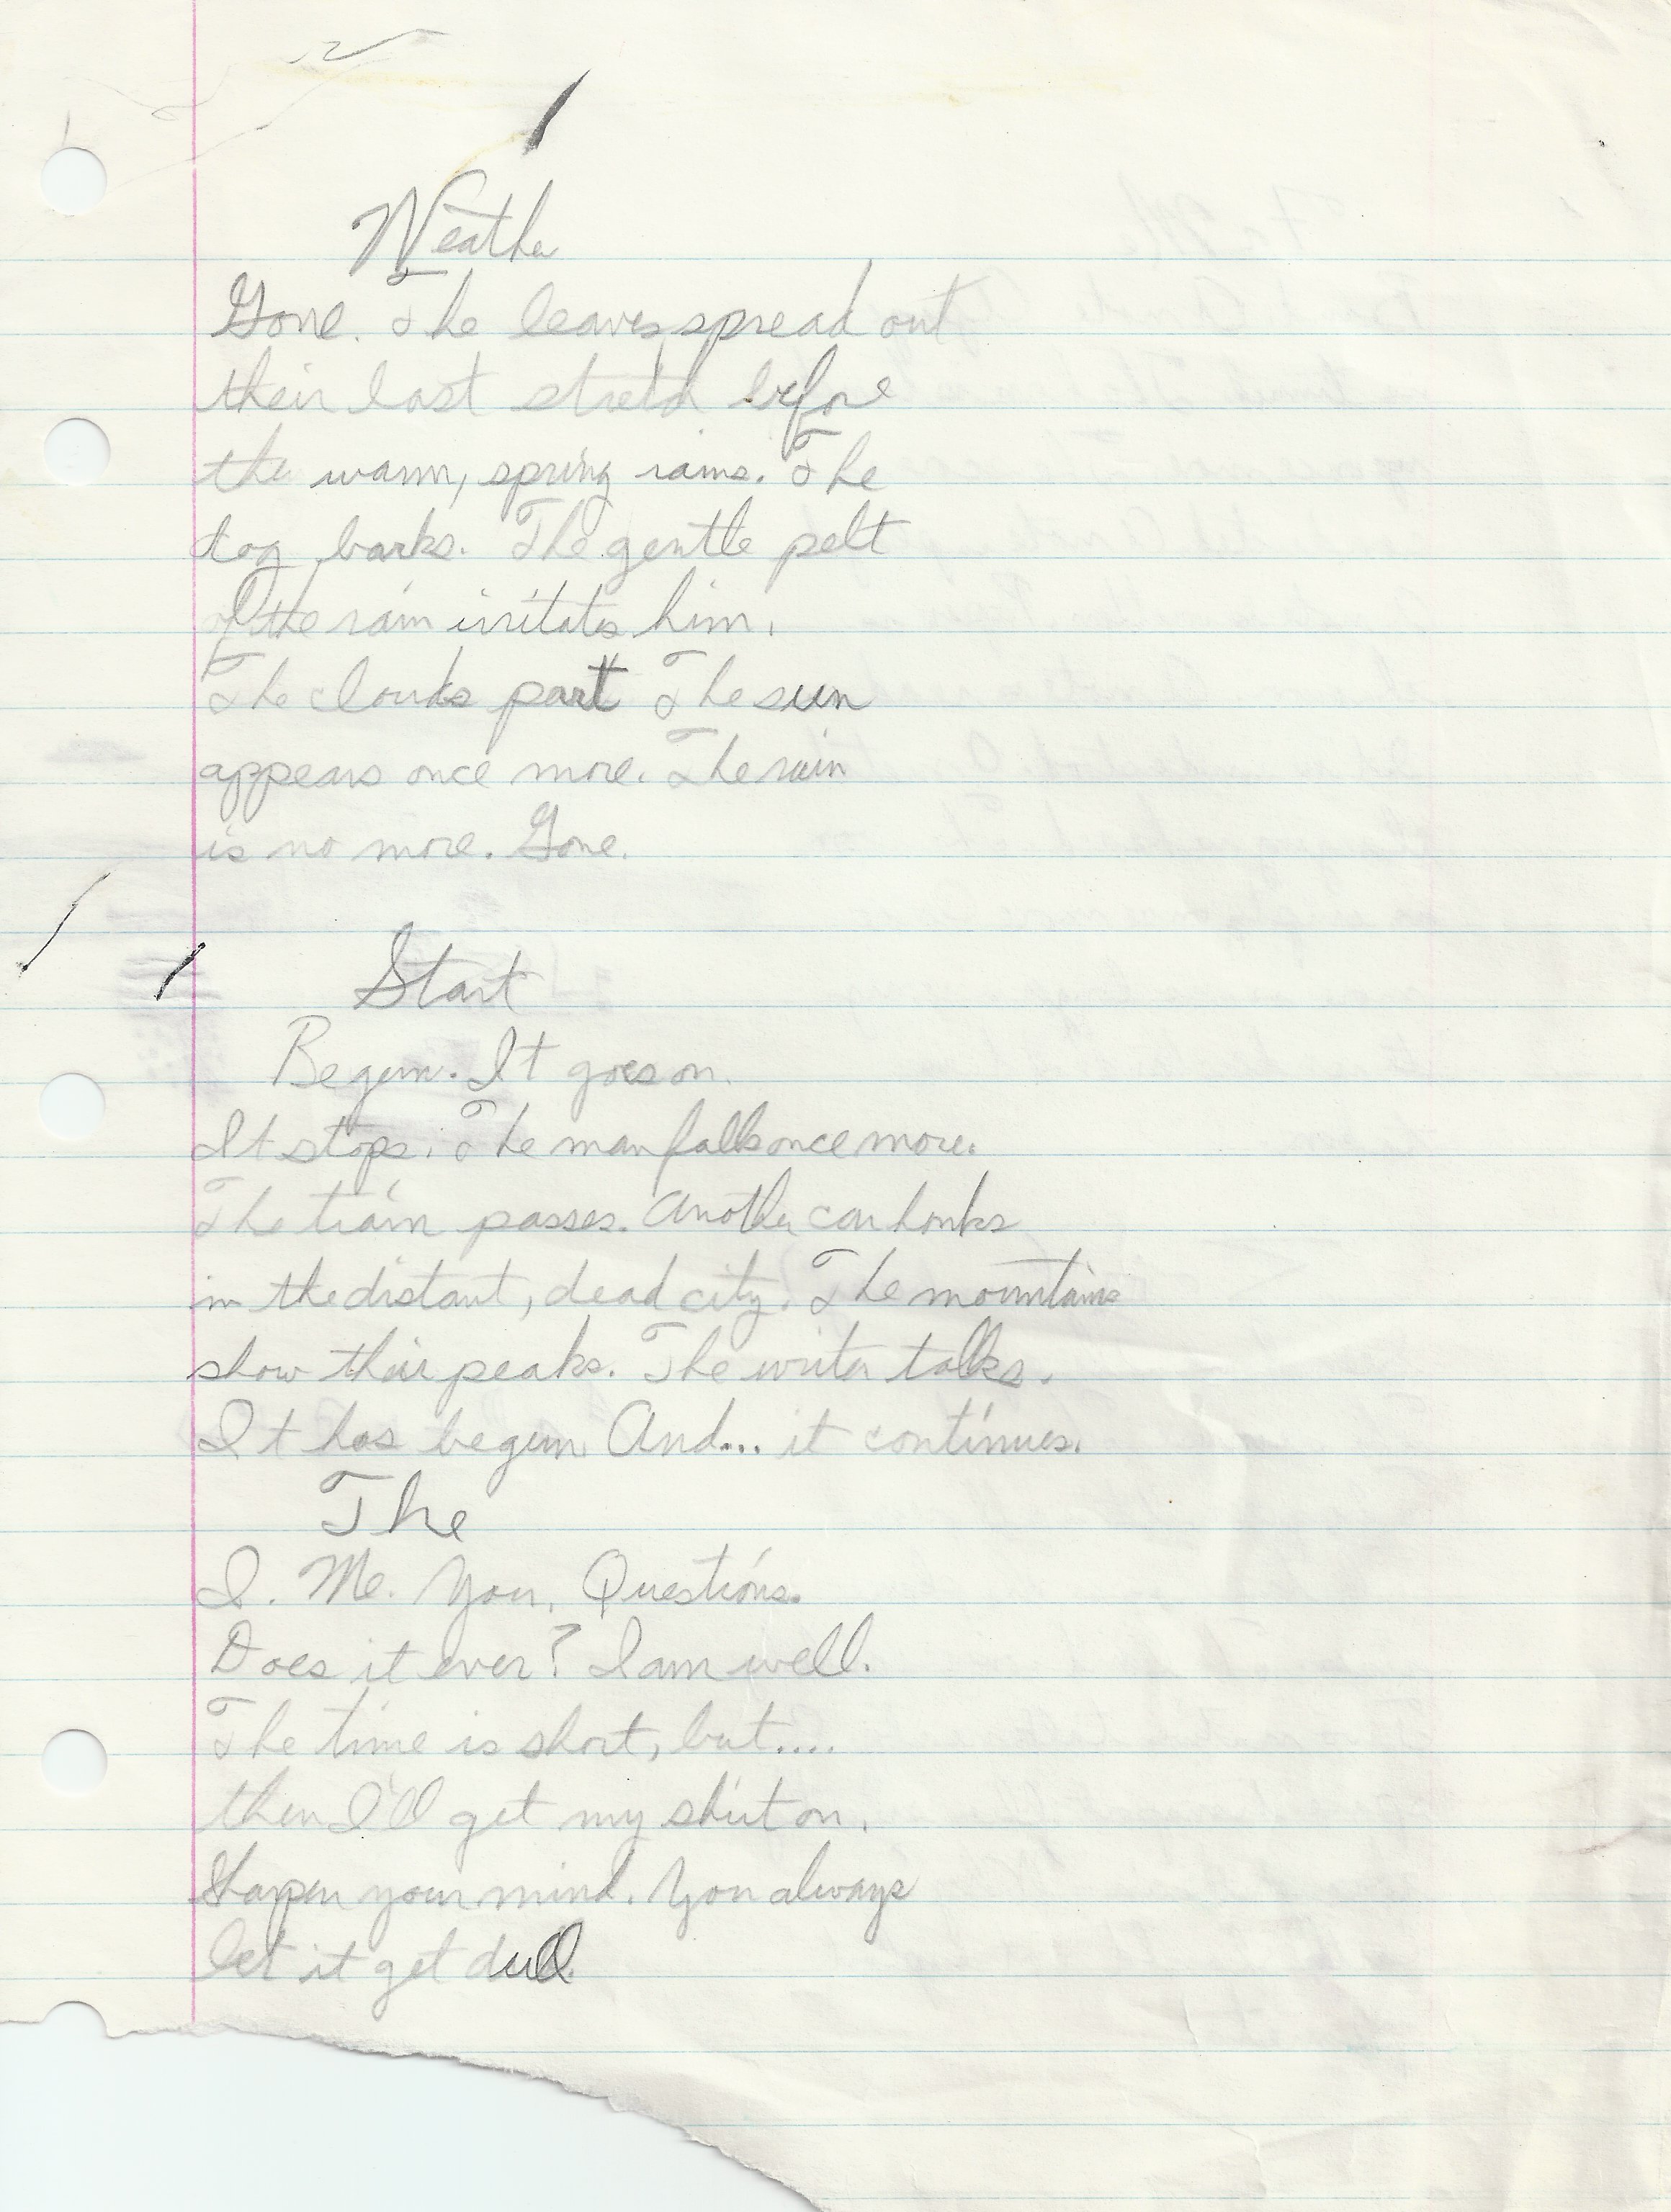 Weather
Gone. The leaves spread out
their last stretch before
the warm, spring rains. The
dog barks. The gentle pelt
of the rain irritates him.
The clouds part The sun
appears once more. The rain
is no more. Gone.
Start
Begun. It goes on.
It stops. The man falls once more.
The train passes. Another car honks
in the distant, dead city. The mountains
show their peaks. The writer talks.
It has begun. And... it continues.
The
I. Me. You. Questions.
Does it ever? I am well.
The time is short, but....
then I'll get my shirt on.
Sharpen your mind. You always
let it get dull.